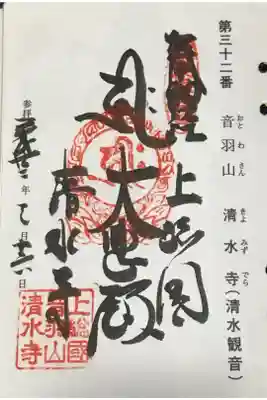 第三十二番 音羽山 清水寺(清水観音)
おとわさん きよみずでら
上総国
大悲殿
清水寺
参拝 年 月 日
上総國
音羽山
清水寺